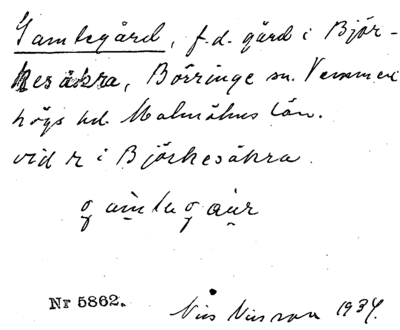 Gamlegård, f.d. gård i Björ-
kesåkra, Börringe sn. Vemmen
högs hd. Malmöhus län.
vid r i Björkesåkra.
Nr 5862.
Nils Nilsson 1934.